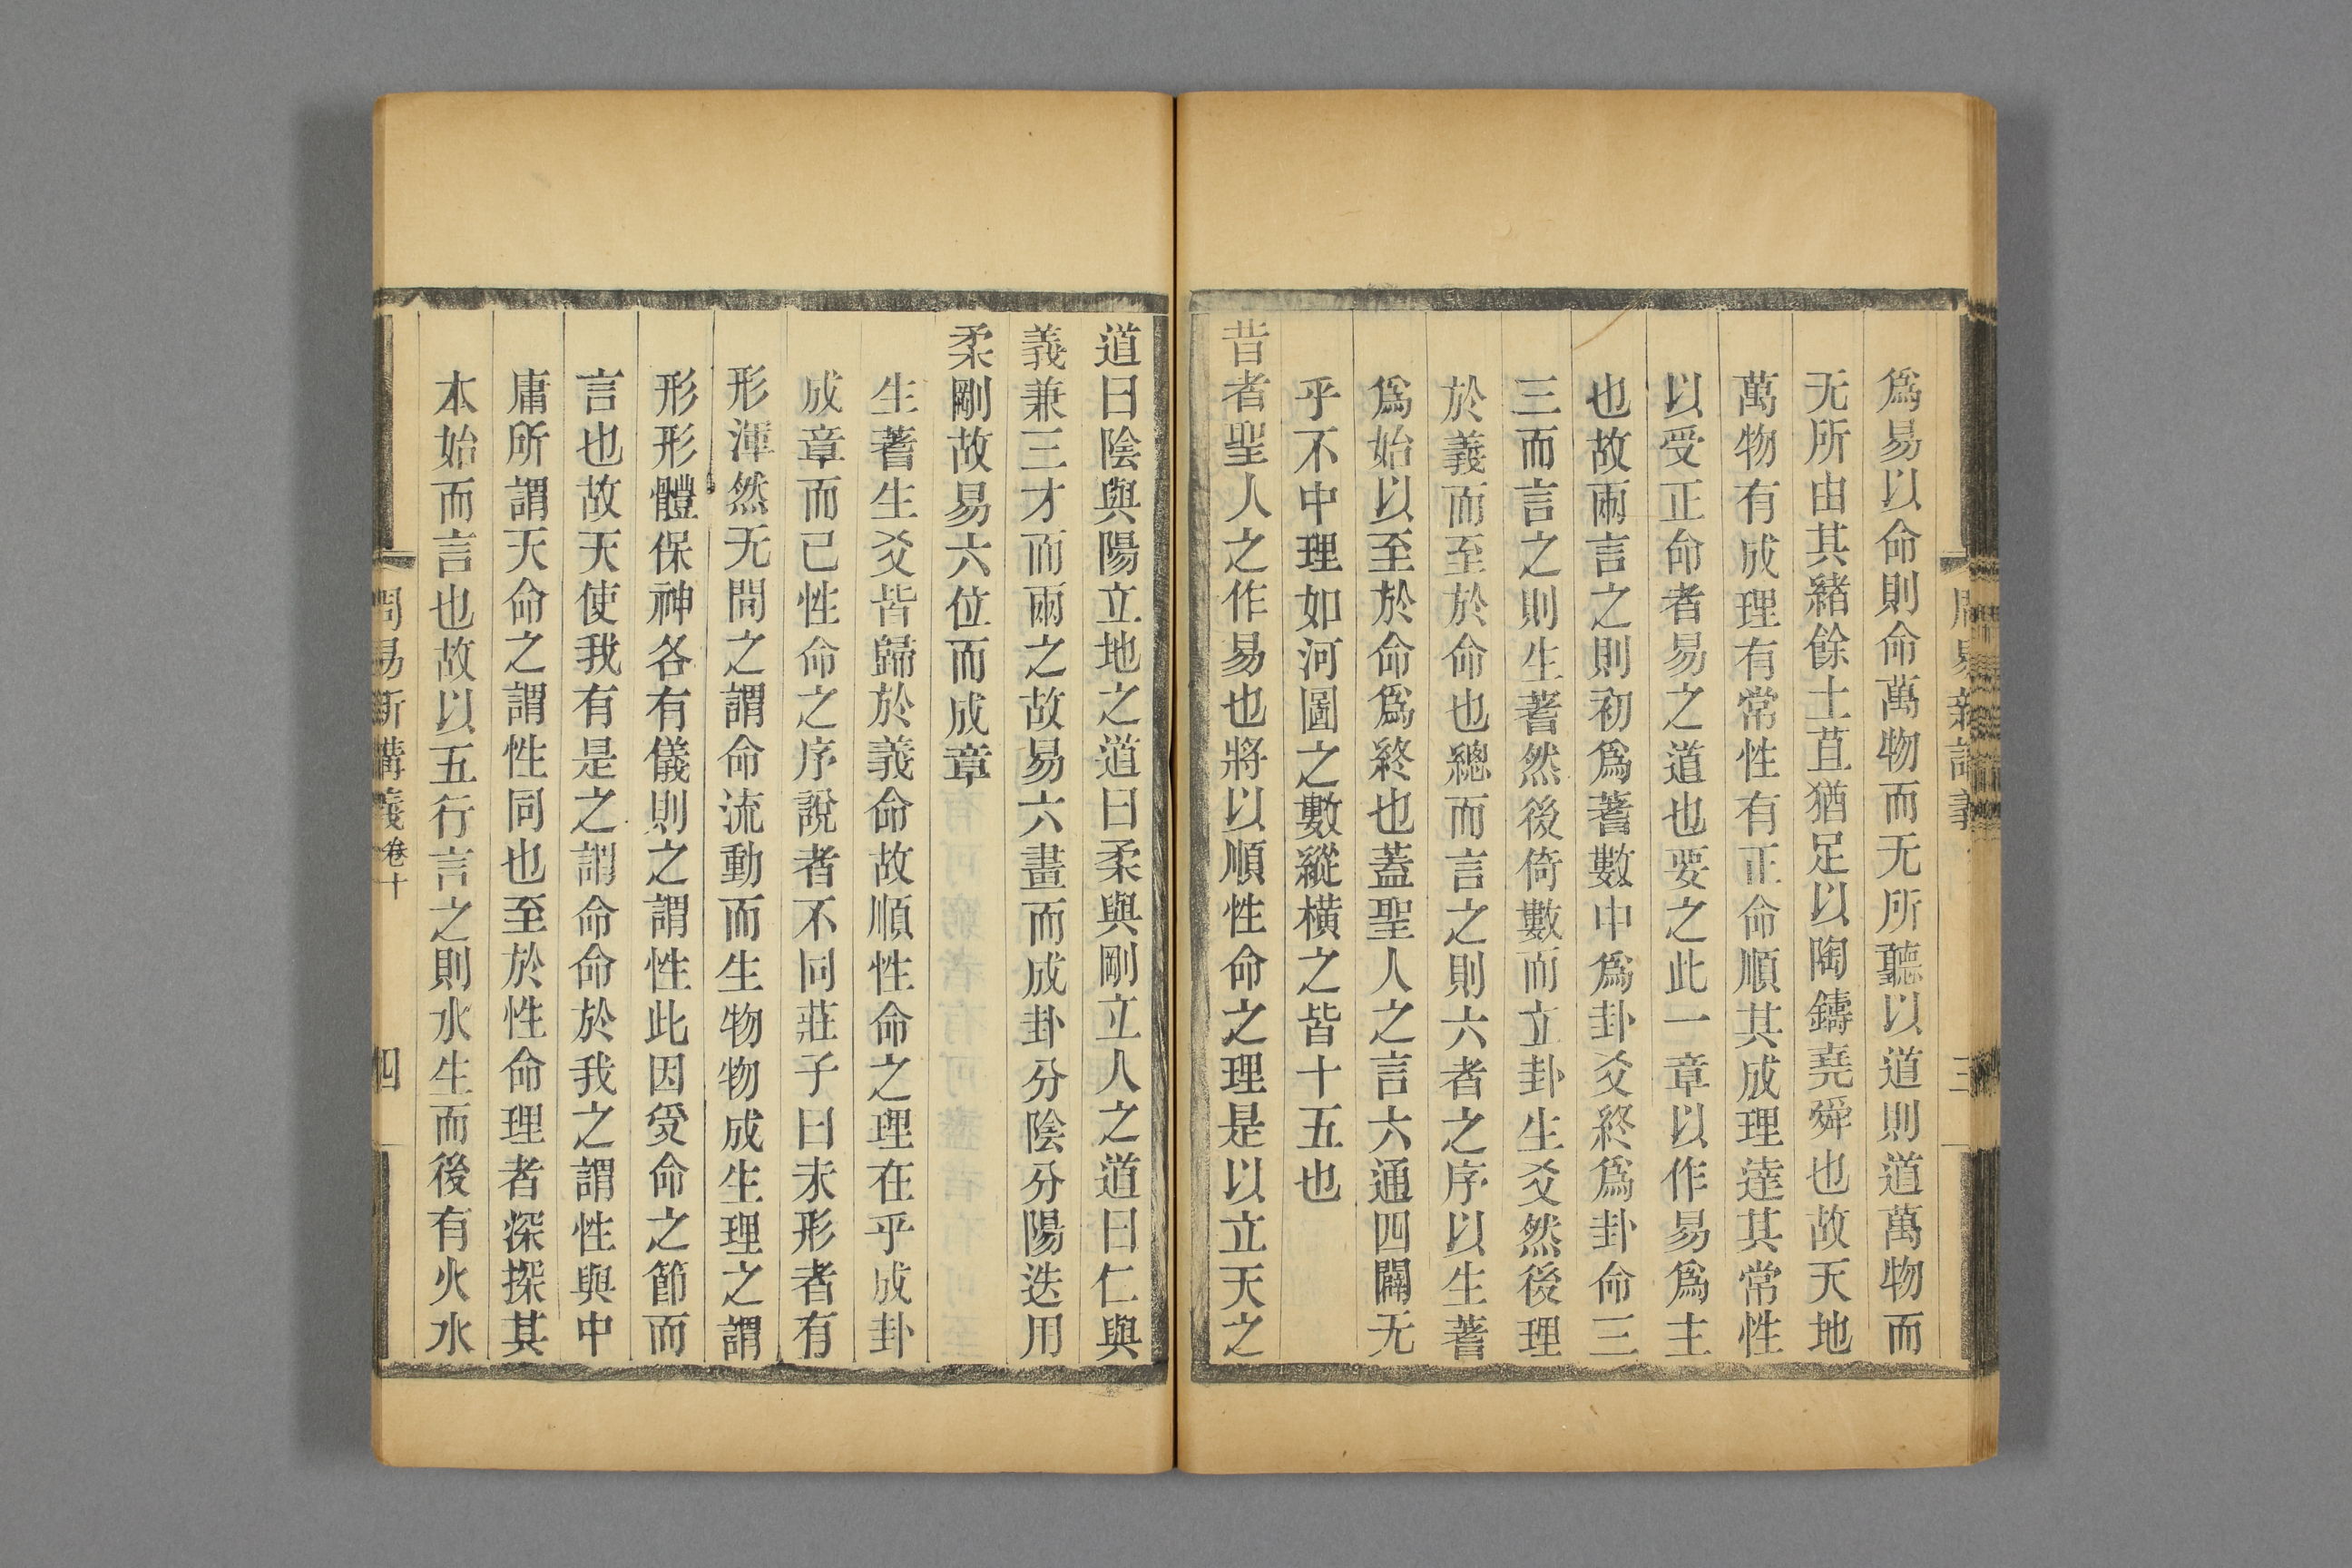 爲易以命則命萬物而无所聽以道則道萬物而
无所由其緒餘土苴猶足以陶鑄堯舜也故天地
萬物有成理有常性有正命順其成理達其常性
以受正命者易之道也要之此一章以作易爲主
也故兩言之則初爲蓍數中爲卦爻終爲卦命三
三而言之則生蓍然後倚數而立卦生爻然後理
於義而至於命也總而言之則六者之序以生蓍
爲始以至於命爲終也蓋聖人之言六通四闢无
乎不中理如河圖之數縱橫之皆十五也
昔者聖人之作易也將以順性命之理是以立天之
道曰陰與陽立地之道曰柔與剛立人之道曰仁與
義兼三才而兩之故易六畫而成卦分陰分陽迭用
柔剛故易六位而成章
生蓍生爻皆歸於義命故順性命之理在乎成卦
成章而已性命之序說者不同莊子曰未形者有
形渾然无間之謂命流動而生物物成生理之謂
形形體保神各有儀則之謂性此因受命之節而
言也故天使我有是之謂命命於我之謂性與中
庸所謂天命之謂性同也至於性命理者深探其
本始而言也故以五行言之則水生而後有火水
周易新講義卷十
四